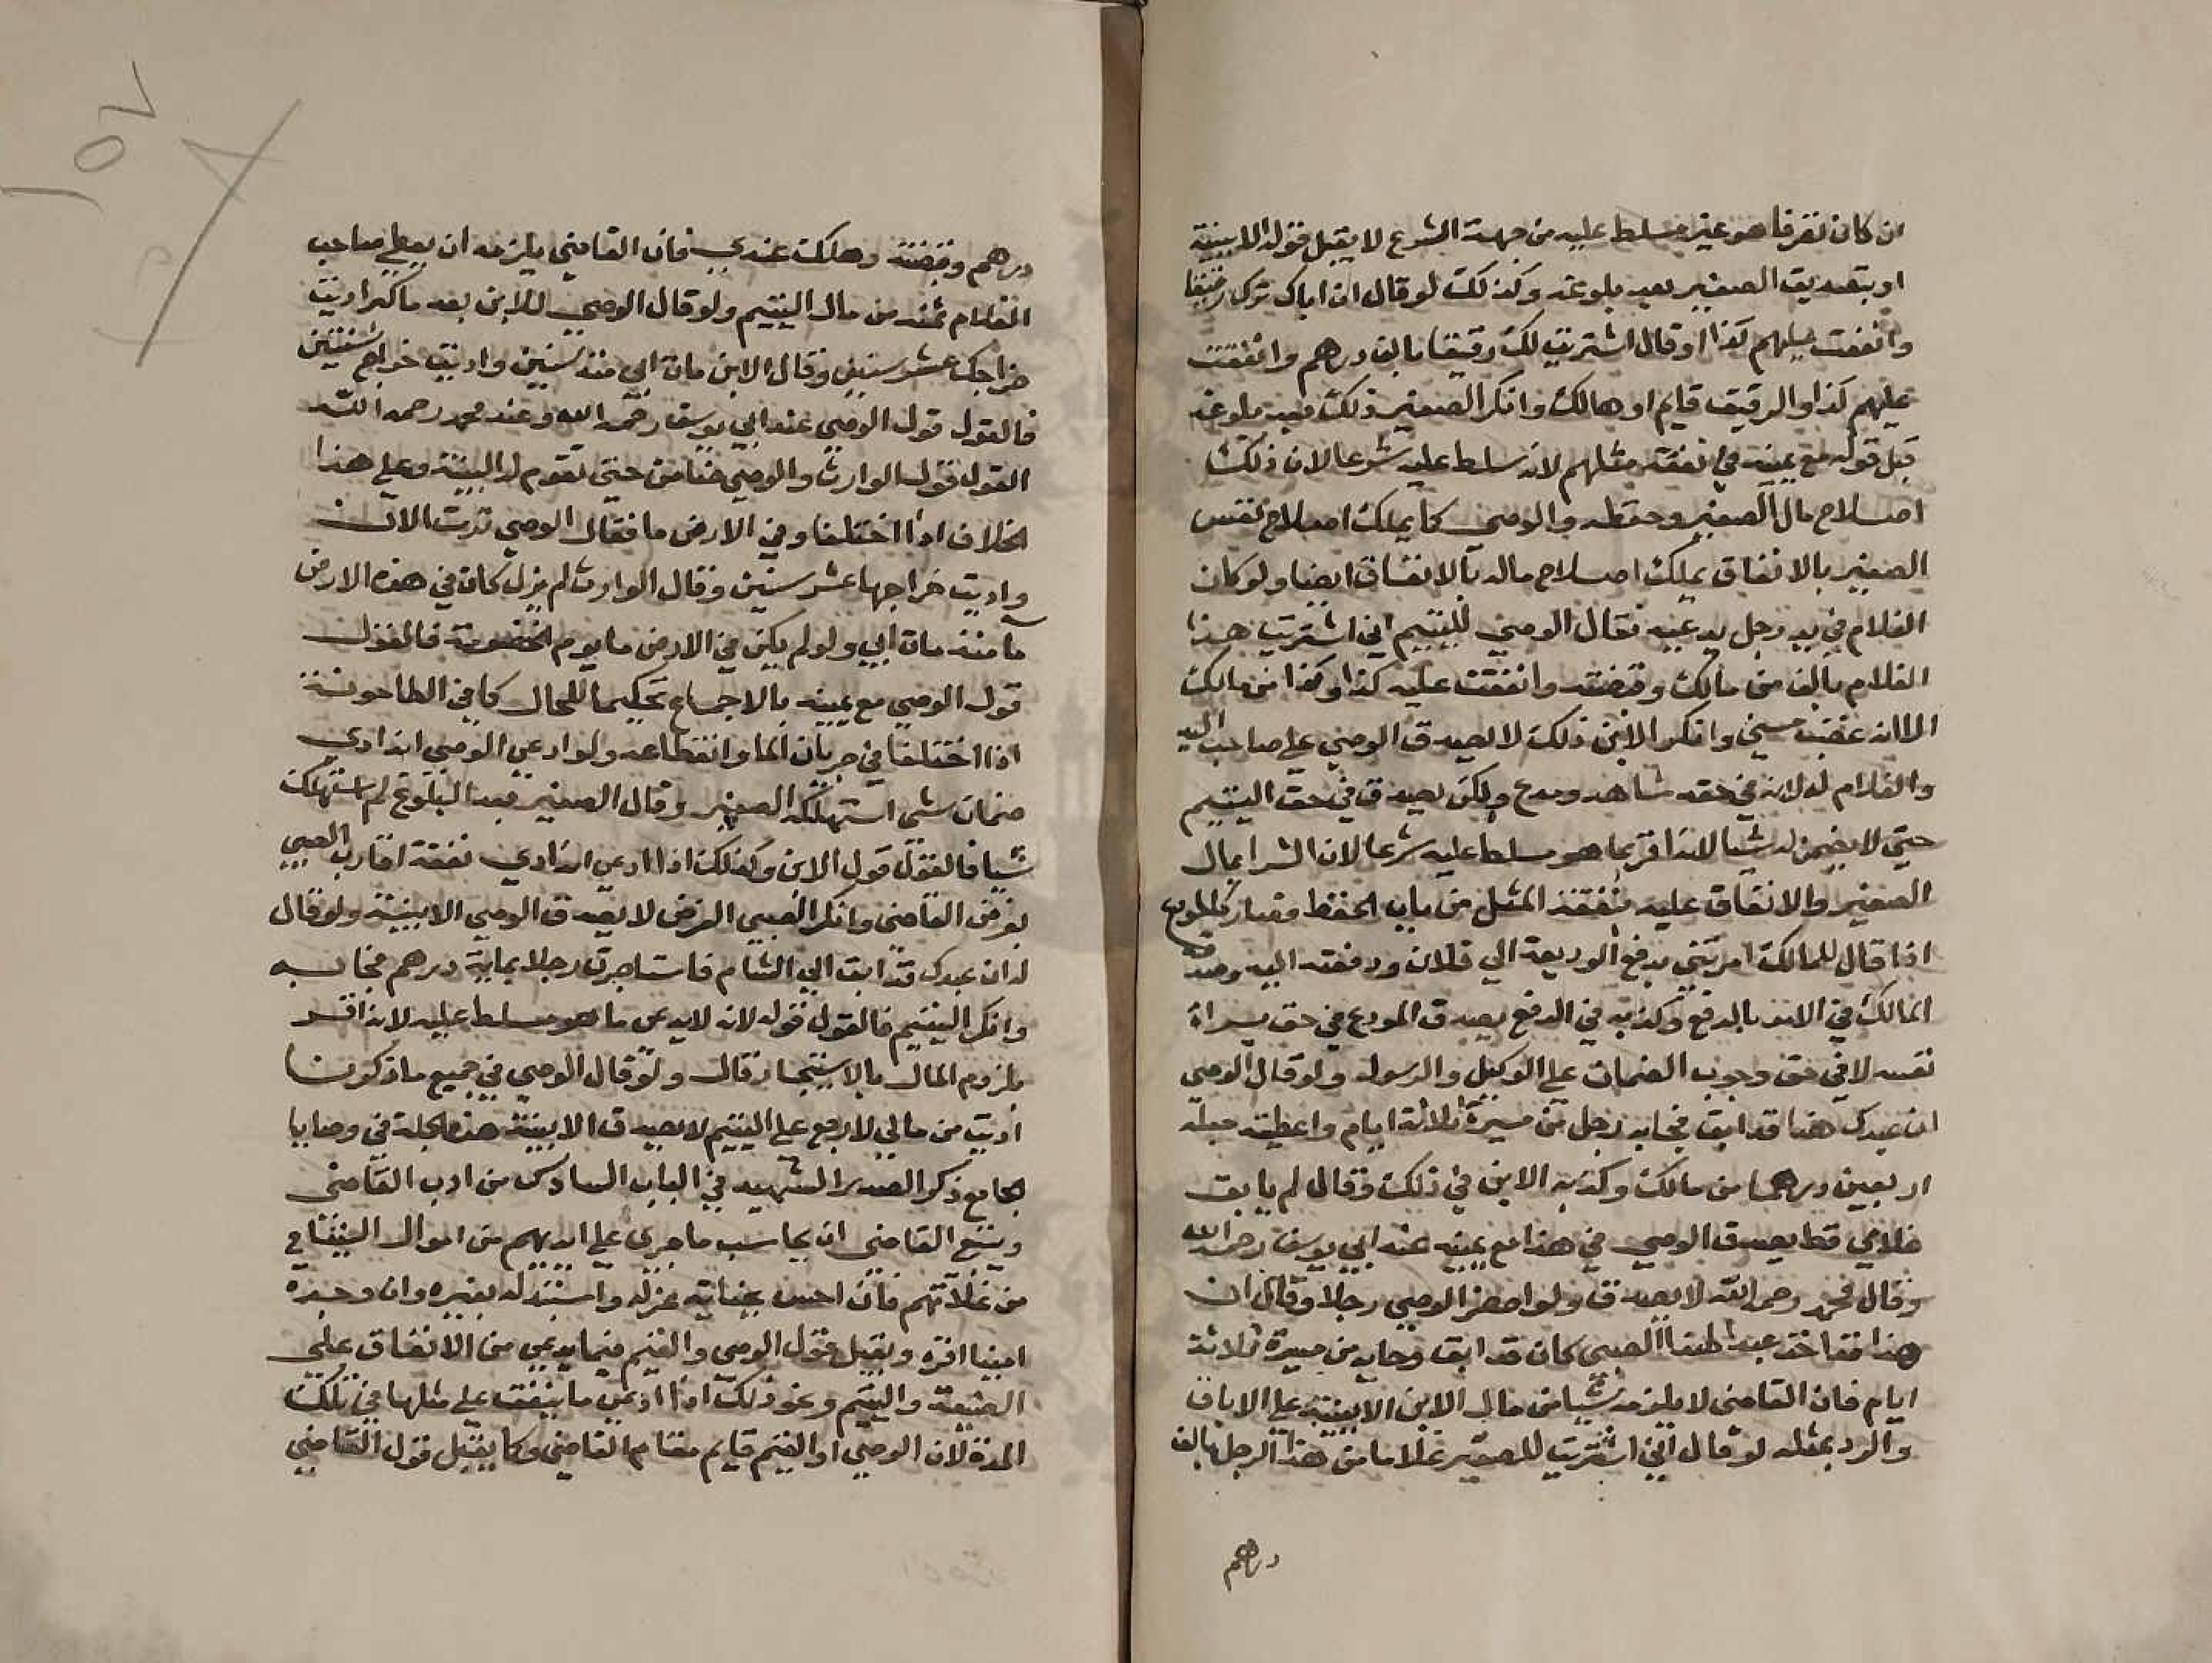 ان كان تصرفا هو غير مسلط عليه من جهة الشرع لا يقبل قوله الا ببينة
او بتصديق الصغير بعد بلوغه وكذلك لو قال ان اباك ترك رقيقا
وانفقت عليهم كذا او قال اشتريت لك رقيقا بالف درهم وانفقت
عليهم كذا والرقيق قايم او هالك وانكر الصغير ذلك بعد بلوغه
قبل قوله مع يمينه في نفقة مثلهم لانه سلط عليه شرعا لان ذلك
اصلاح مال الصغير وحفظه والوصي كما يملك اصلاح نفس
الصغير بالانفاق يملك اصلاح ماله بالانفاق ايضا ولو كان
الغلام في يد رجل يدعيه فقال الوصي لليتيم اني اشتريت هذا
الغلام بالف من مالك وقبضته وانفقت عليه كذا وكذا من مالك
الا انه غصب مني وانكر الابن ذلك لا يصدق الوصي على صاحب اليد
والغلام له لانه في حقه شاهد ومدع ولكن يصدق في حق اليتيم
حتى لا يضمن له شيا لانه اقر بما هو مسلط عليه شرعا لان الشرا بمال
الصغير والانفاق عليه نفقة المثل من باب الحفظ فصار كالمودع
اذا قال للمالك امرتني بدفع الوديعة الي فلان ودفعته اليه وصدقه
المالك في الاذن بالدفع وكذبه في الدفع يصدق المودع في حق براة
نفسه لا في حق وجوب الضمان على الوكيل والرسول ولو قال الوصي
ان عبدك هذا قد ابق فجا به رجل من مسيرة ثلاثة ايام واعطيته جعله
اربعين درهما من مالك وكذبه الابن في ذلك وقال لم يابق
غلامي قط يصدق الوصي في هذا مع يمينه عند ابي يوسف رحمه الله
وقال محمد رحمه الله لا يصدق ولو احضر الوصي رجلا وقال ان
هذا عبد لهذا الصبي كان قد ابق وجا به من مسيرة ثلاثة
ايام فان القاضي لا يلزمه شيا من مال الابن الا ببينة على الاباق
والرد بمثله لو قال اني اشتريت للصغير غلاما من هذا الرجل بالف
درهم
درهم وقبضته وهلك عندي فان القاضي يلزمه ان يعطي صاحب
الغلام ثمنه من مال اليتيم ولو قال الوصي للابن بعد ما كبر اديت
خراجك عشر سنين وقال الابن مات ابي منذ سنتين واديت خراج سنتين
فالقول قول الوصي عند ابي يوسف رحمه الله وعند محمد رحمه الله
القول قول الوارث والوصي ضامن حتى تقوم له البينة وعلى هذا
الخلاف اذا اختلفا وفي الارض ما فقال الوصي الان
واديت خراجها عشر سنين وقال الوارث لم يزل كان في هذه الارض
ما منذ مات ابي ولو لم يكن في الارض ما يوم الخصومة فالقول
قول الوصي مع يمينه بالاجماع تحكيما للحال كما في الطاحونة
اذا اختلفا في جريان الما وانقطاعه ولو ادعى الوصي انه ادى
ضمان شي استهلكه الصغير وقال الصغير بعد البلوغ لم استهلك
شيا فالقول قول الابن وكذلك اذا ادعى انه ادى نفقة اقارب الصبي
بفرض القاضي وانكر الصبي الفرض لا يصدق الوصي الا ببينة ولو قال
له ان عبدك قد ابق الي الشام فاستاجرت رجلا بماية درهم فجا به
وانكر اليتيم فالقول قوله لانه ما هو مسلط عليه لانه اقر
بلزوم المال بالاستيجار قال ولو قال الوصي في جميع ما ذكرنا
اديت من مالي لارجع على اليتيم لا يصدق الا ببينة هذه الجملة في وصايا
الجامع ذكر الصدر الشهيد في الباب السادس من ادب القاضي
وينبغي القاضي ان يحاسب ما جرى على ايديهم من اموال اليتامى
من غلاتهم فان احس بخيانة عزله واستبدله بغيره وان وجده
امينا اقره ويقبل قول الوصي والقيم فيما يدعي من الانفاق على
الضيعة واليتيم ونحو ذلك اذا ادعى ما ينفق على مثلها في تلك
المدة لان الوصي او القيم قايم مقام القاضي وكما يقبل قول القاضي
١٥٧